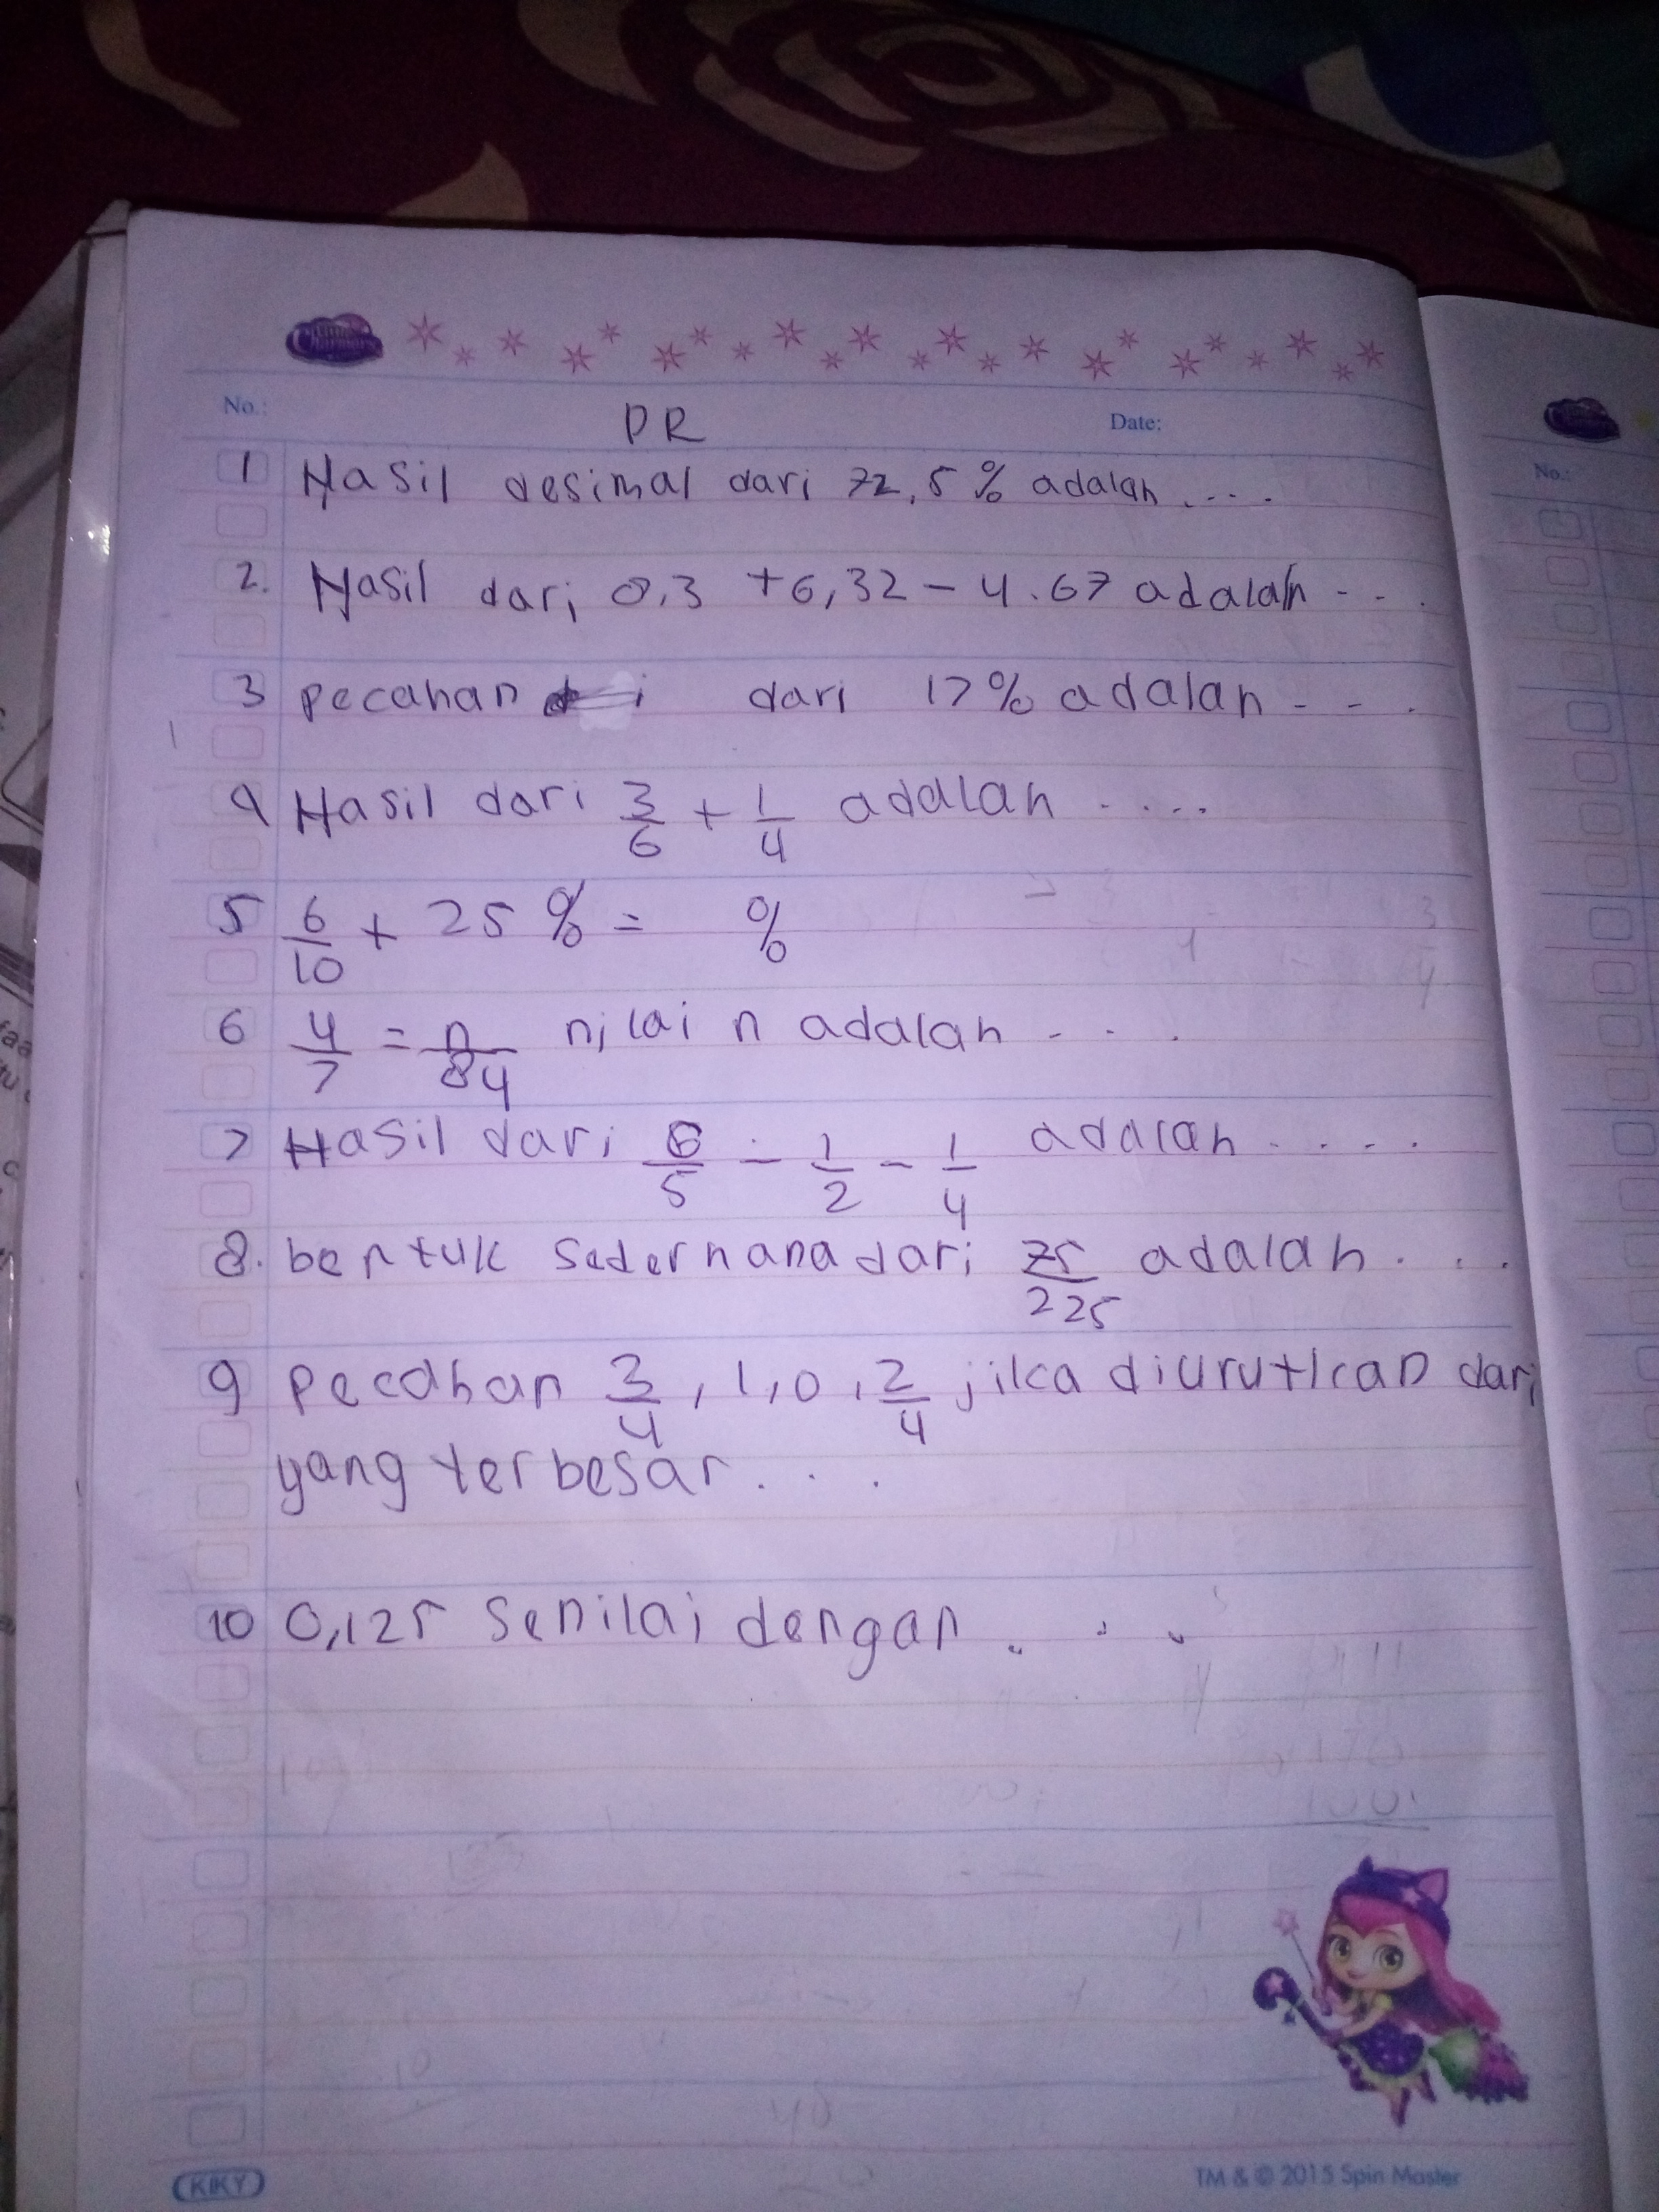 No.:
PR
Date:
1 Hasil desimal dari 72,5 % adalah ....
2. Hasil dari 8,3 + 6,32 - 4.67 adalah ...
3 pecahan dari 17% adalah ....
4 Hasil dari 3/6 + 1/4 adalah ....
5 6/10 + 25 % = %
6 4/7 = n/84 nilai n adalah ...
7 Hasil dari 6/5 - 1/2 - 1/4 adalah ....
8. bentuk sederhana dari 75/225 adalah ...
9 pecahan 3/4, 1,0, 2/4 jika diurutkan dari
yang terbesar ...
10 0,125 senilai dengan ...
KIKY
TM & © 2015 Spin Master
No.: